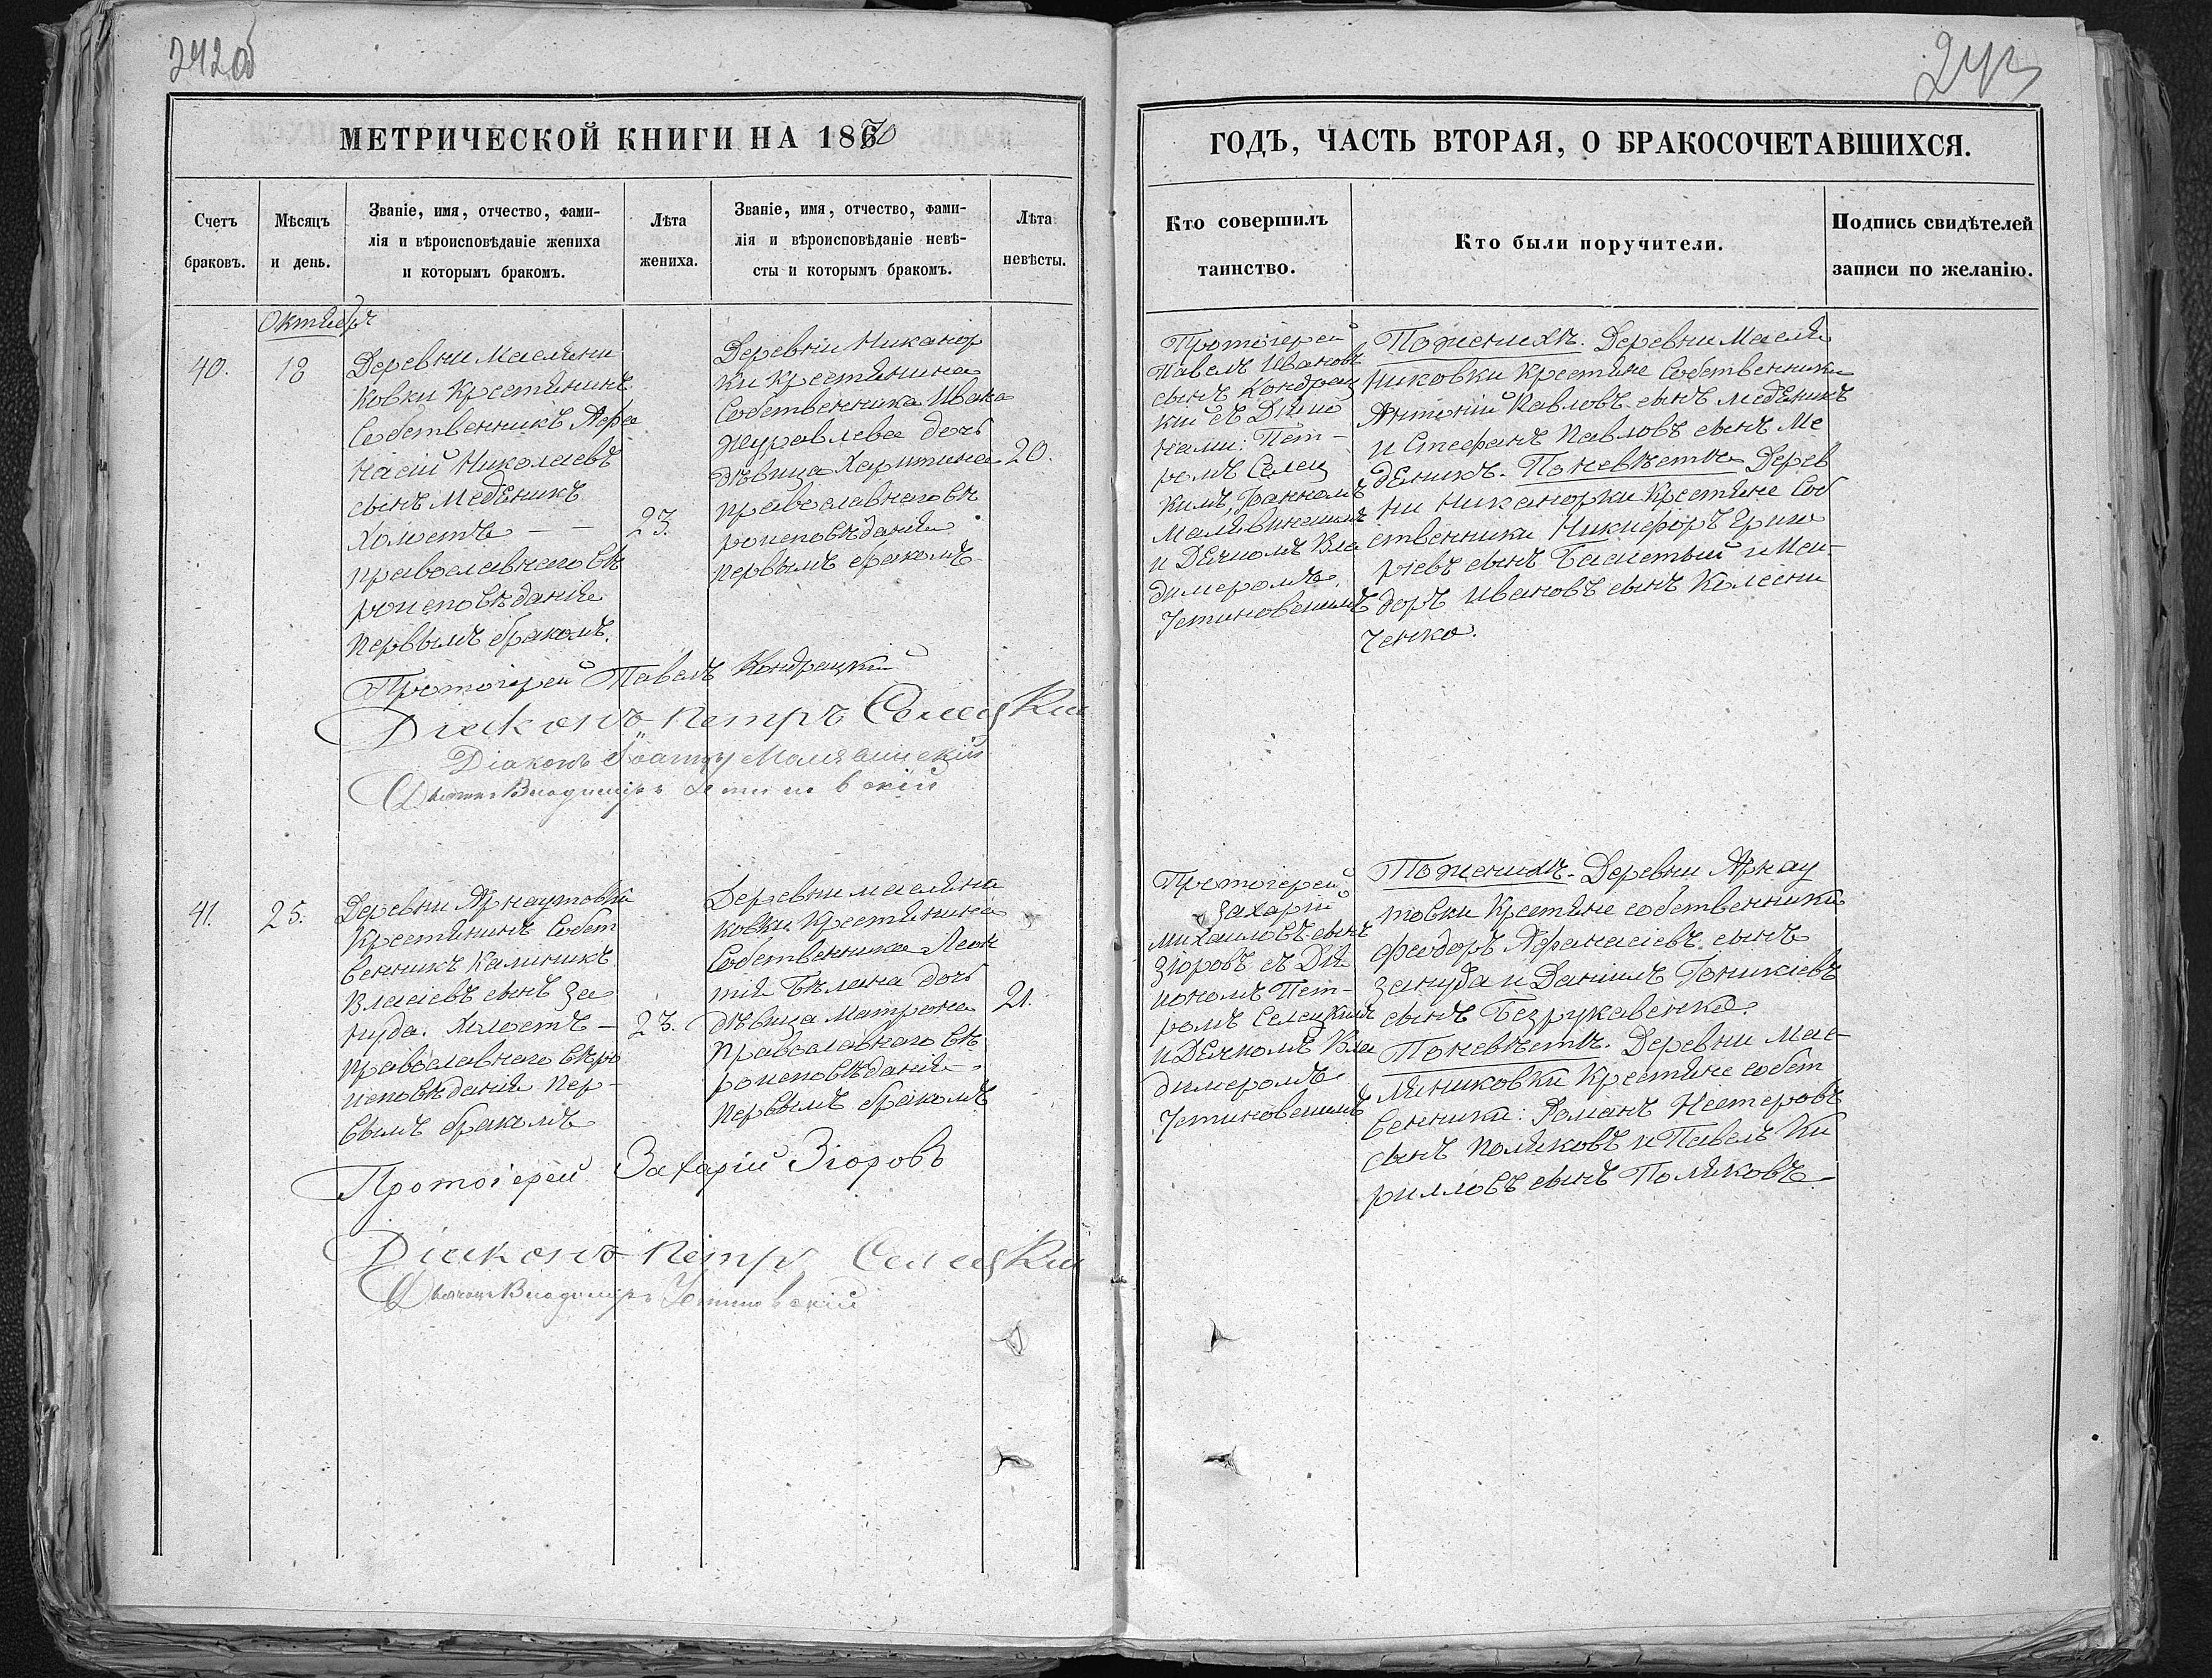 242об
243
МЕТРИЧЕСКОЙ КНИГИ НА 1870
Счетъ
браковъ.
Мѣсяцъ
и день.
Званіе, имя, отчество, фами-
лія и вѣроисповѣданіе жениха
и которымъ бракомъ.
Лѣта
жениха.
Званіе, имя, отчество, фами-
лія и вѣроисповѣданіе невѣ-
сты и которымъ бракомъ.
Лѣта
невѣсты.
ГОДЪ, ЧАСТЬ ВТОРАЯ, О БРАКОСОЧЕТАВШИХСЯ.
Кто совершилъ
таинство.
Кто были поручители.
Подпись свидѣтелей
записи по желанію.
Октябрь
40.
18
Деревни Масляни
ковки Крестьянинъ
Собственникъ Афа
насій Николаевъ
сынъ Медяникъ
Холостъ — —
православнаго вѣ
роисповѣданія
первымъ бракомъ.
23.
Деревни Никанор
ки крестьянина
Собственника Ивана
Журавлева дочь
дѣвица Харитина
православнаго вѣ
роисповѣданія
первымъ бракомъ
20.
Протоіерей
Павелъ Ивановъ
сынъ Кондрац
кій съ Діяко
нами: Пет-
ромъ Селец
кимъ, Іоанномъ
Малявинскимъ
и Дьячкомъ Вла
димеромъ
Устиновскимъ
По женихѣ. Деревни Масля
никовки крестьяне Собственники
Антоній Павловъ сынъ Медяникъ
и Стефанъ Павловъ сынъ Ме
дяникъ. По невѣстѣ Дерев
ни Никанорки Крестьяне Соб
ственники Никифоръ Григо
ріевъ сынъ Басистый и Иси-
доръ Ивановъ сынъ Колесни
ченко.
Протоіерей Павелъ Кондрацкій
Діаконъ Петръ Селецкій
Діаконъ Іоаннъ Малявинскій
Дьячекъ Владиміръ Устиновскій
41.
25.
Деревни Арнаутовки
Крестьянинъ Собст
венникъ Калиникъ
Власіевъ сынъ За
нуда. Холостъ —
православнаго вѣро
исповѣданія пер-
вымъ бракомъ
23.
Деревни Масляни
ковки Крестьянина
Собственника Леон
тія Бѣлана дочь
дѣвица Матрона
православнаго вѣ
роисповѣданія
первымъ бракомъ
21.
Протоіерей
Захарій
Михаиловъ сынъ
Зіоровъ съ Дія
кономъ Пет-
ромъ Селецкимъ
и Дьячкомъ Вла
димеромъ
Устиновскимъ
По женихѣ. Деревни Арнау
товки Крестьяне собственники
Феодоръ Афанасіевъ сынъ
Зануда и Даніилъ Іоникіевъ
сынъ Безрукавенко.
По невѣстѣ. Деревни Мас-
ляниковки Крестьяне собст
венники: Романъ Нестеровъ
сынъ Поляковъ и Павелъ Ки
рилловъ сынъ Поляковъ
Протоіерей Захарій Зіоровъ
Діаконъ Петръ Селецкій
Дьячекъ Владиміръ Устиновскій